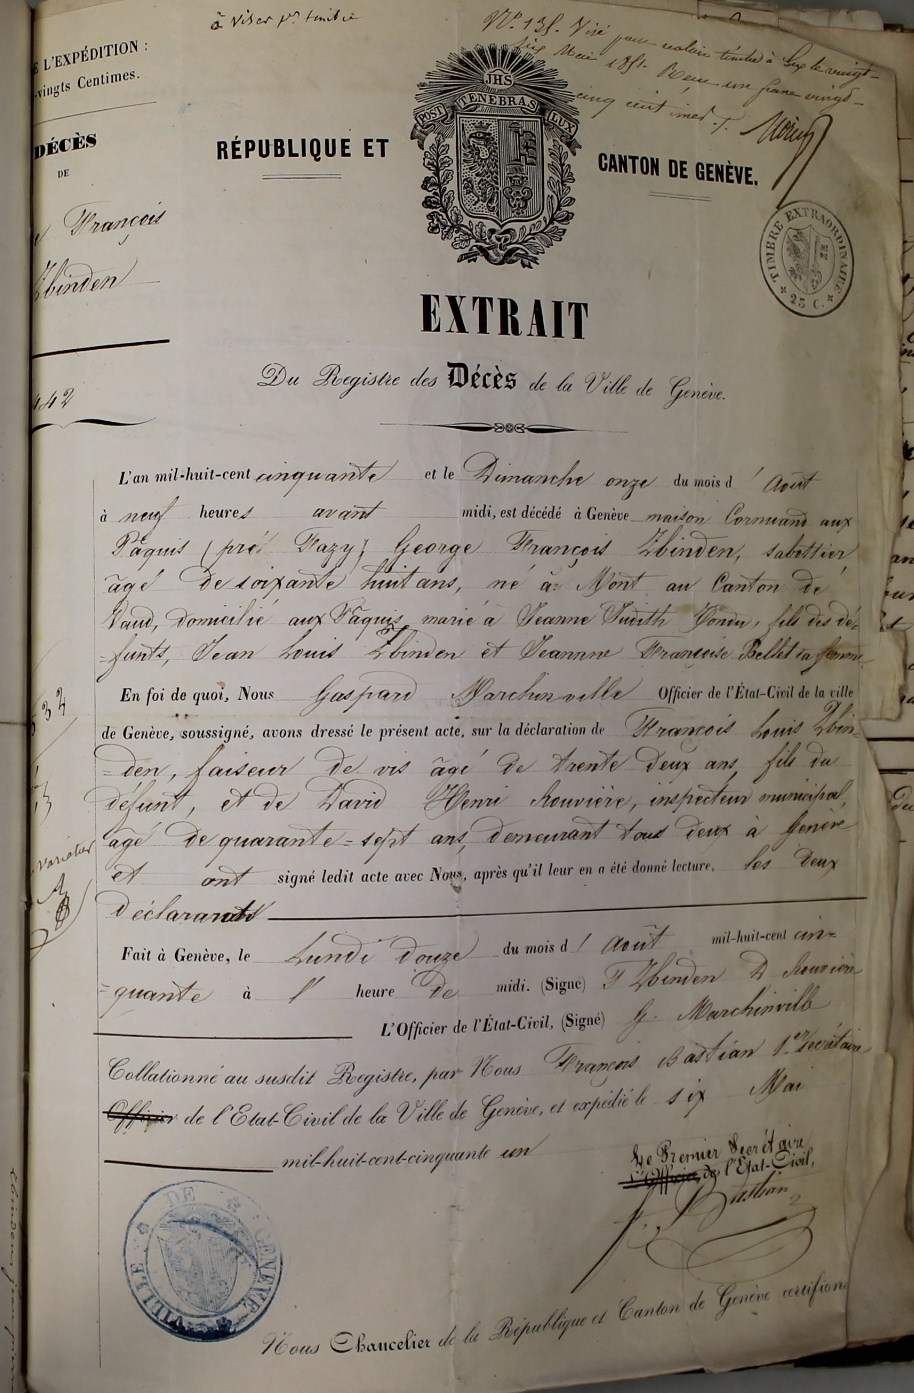 à Viser pr timbre
No. 135. Visé pour valoir timbre à Gex le vingt-
six Mai 1851. Reçu un franc vingt-
cinq centimes.
E L'EXPÉDITION :
-vingts Centimes.
DÉCÈS
DE
François
Zbinden
442
JHS
POST TENEBRAS LUX
RÉPUBLIQUE ET
CANTON DE GENÈVE.
TIMBRE EXTRAORDINAIRE
25 C.
EXTRAIT
Du Registre des Décès de la Ville de Genève.
L'an mil-huit-cent cinquante et le Dimanche onze du mois d'Août
à neuf heures avant midi, est décédé à Genève maison Cornuand aux
Pâquis (pré Fazy) George François Zbinden, sabottier
âgé de soixante huit ans, né à Mont au Canton de
Vaud, domicilié aux Pâquis, marié à Jeanne Judith fils des dé-
-funts, Jean Louis Zbinden et Jeannne Françoise Bellet sa femme
En foi de quoi, Nous Gaspard Marchinville Officier de l'État-Civil de la ville
de Genève, soussigné, avons dressé le présent acte, sur la déclaration de François Louis Zbin-
-den, faiseur de vis âgé de trente deux ans, fils du
défunt, et de David Henri Rouvière, inspecteur municipal,
âgé de quarante-sept ans, demeurant tous deux à Genève
et ont signé ledit acte avec Nous, après qu'il leur en a été donné lecture, les deux
déclarants
Fait à Genève, le Lundi douze du mois d'Août mil-huit-cent cin-
-quante à 1' heure de midi. (Signé) F Zbinden D Rouvière
L'Officier de l'État-Civil, (Signé) G. Marchinville
Collationné au susdit Registre, par Nous François Bastian 1er Secrétaire
Officier de l'Etat-Civil de la Ville de Genève, et expédié le six Mai
mil-huit-cent-cinquante un
Le Premier Secrétaire
L'Officier de l'État-Civil,
F. Bastian
VILLE DE GENÈVE
Nous Chancelier de la République et Canton de Genève certifions